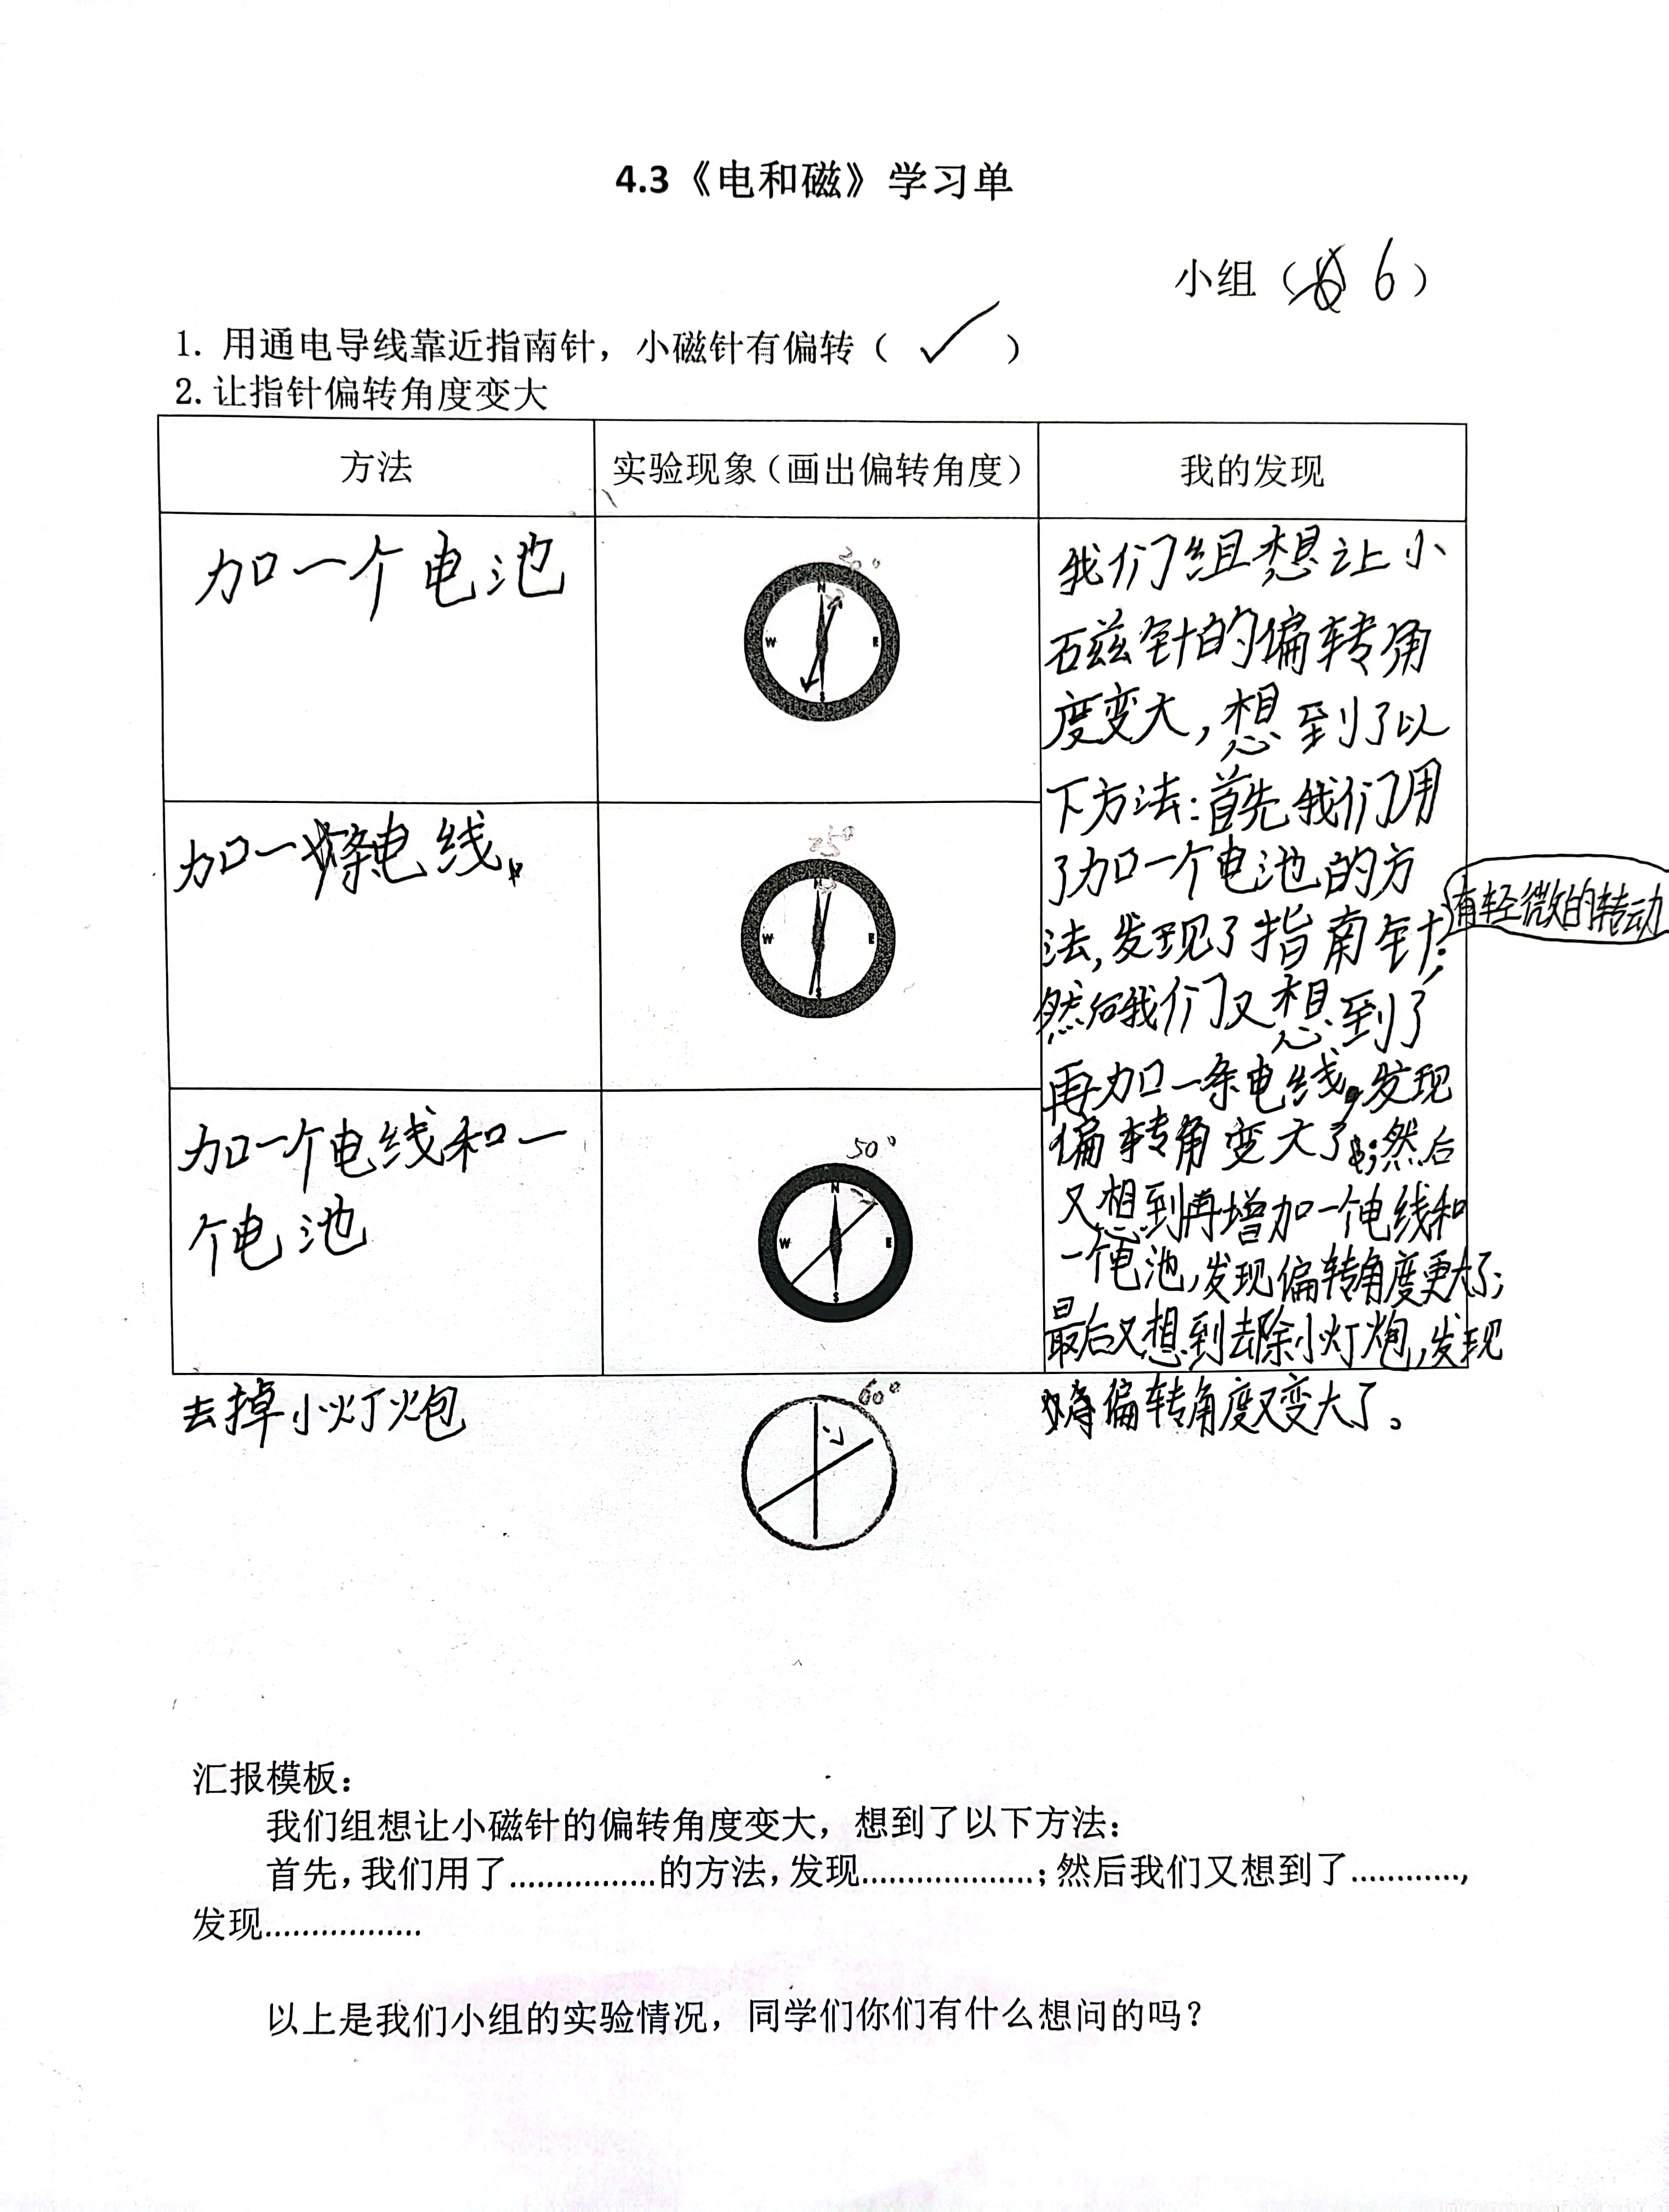 4.3《电和磁》学习单
小组（6）
1. 用通电导线靠近指南针，小磁针有偏转（ ✓ ）
2.让指针偏转角度变大
方法
实验现象（画出偏转角度）
我的发现
加一个电池
N
W
E
S
加一条电线
25°
N
W
E
S
加一个电线和一
个电池
50°
N
W
E
S
我们组想让小
磁针的偏转角
度变大，想到了以
下方法：首先我们用
了加一个电池的方
法，发现了指南针
有轻微的转动
然后我们又想到了
再加一条电线，发现
偏转角变大了；然后
又想到再增加一个电线和
一个电池，发现偏转角度更大了；
最后又想到去除小灯炮，发现
偏转角度又变大了。
去掉小灯炮
60°
汇报模板：
我们组想让小磁针的偏转角度变大，想到了以下方法：
首先，我们用了................的方法，发现...................；然后我们又想到了............，
发现.................
以上是我们小组的实验情况，同学们你们有什么想问的吗？